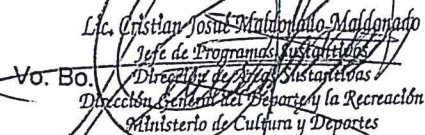 Lic. Cristian Josué Maldonado Maldonado
Jefe de Programas Sustantivos
Vo. Bo. Dirección de Áreas Sustantivas
Dirección General del Deporte y la Recreación
Ministerio de Cultura y Deportes